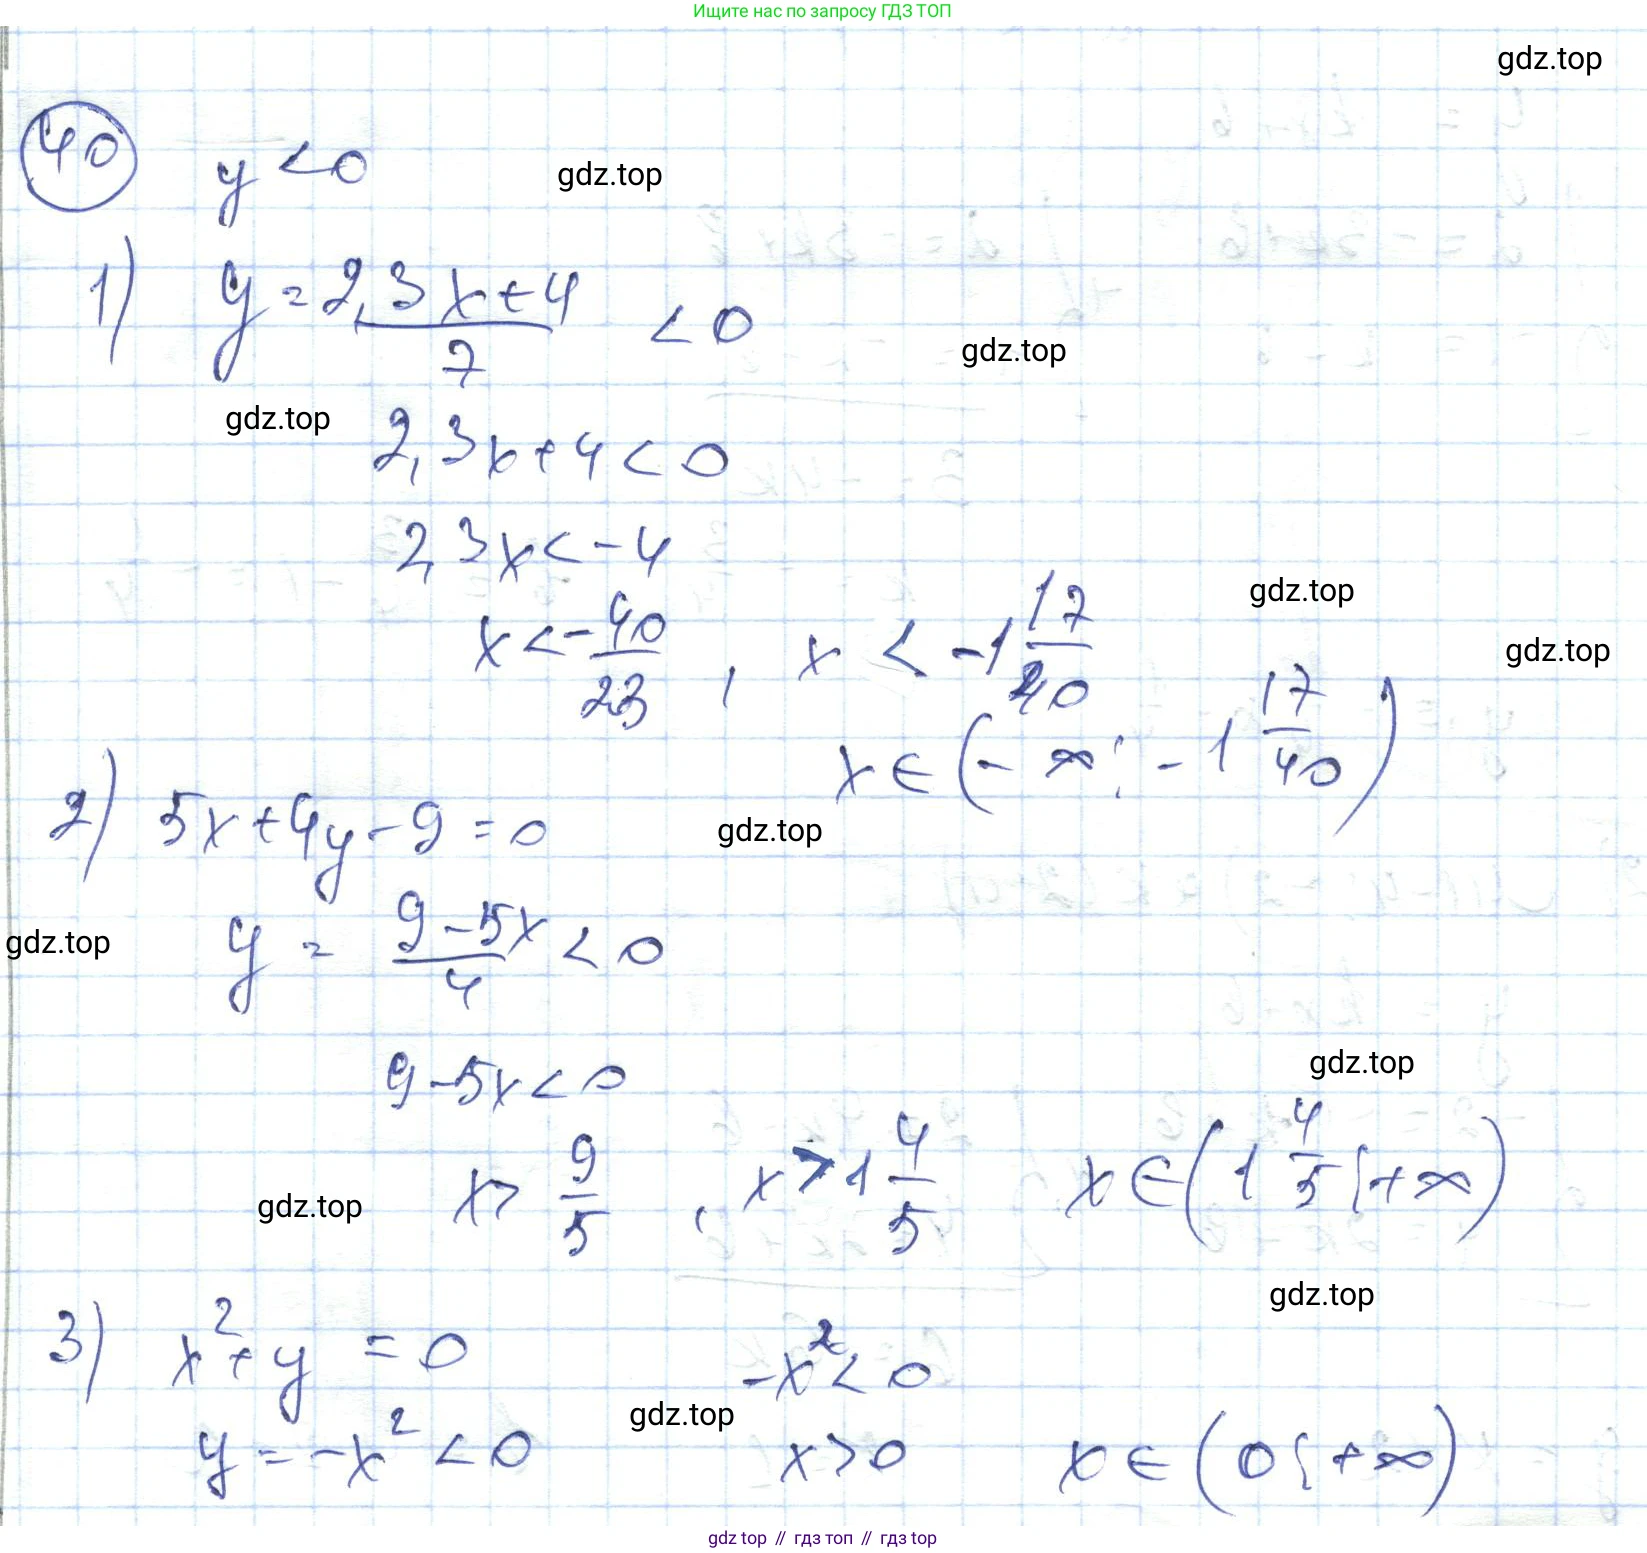 Ищите нас по запросу ГДЗ ТОП
gdz.top
40 y < 0
gdz.top
1) y = 2,3x+4/7 < 0
gdz.top
gdz.top
2,3x+4<0
2,3x<-4
gdz.top
x < -40/23 , x < -1 17/40
gdz.top
x ∈ (-∞; -1 17/40)
2) 5x+4y-9=0
gdz.top
gdz.top
y = 9-5x/4 < 0
9-5x<0
gdz.top
x > 9/5 , x > 1 4/5 x ∈ (1 4/5; +∞)
gdz.top
gdz.top
3) x²+y = 0 -x² < 0
gdz.top
y = -x² < 0 x > 0 x ∈ (0; +∞)
gdz top // гдз топ // гдз top